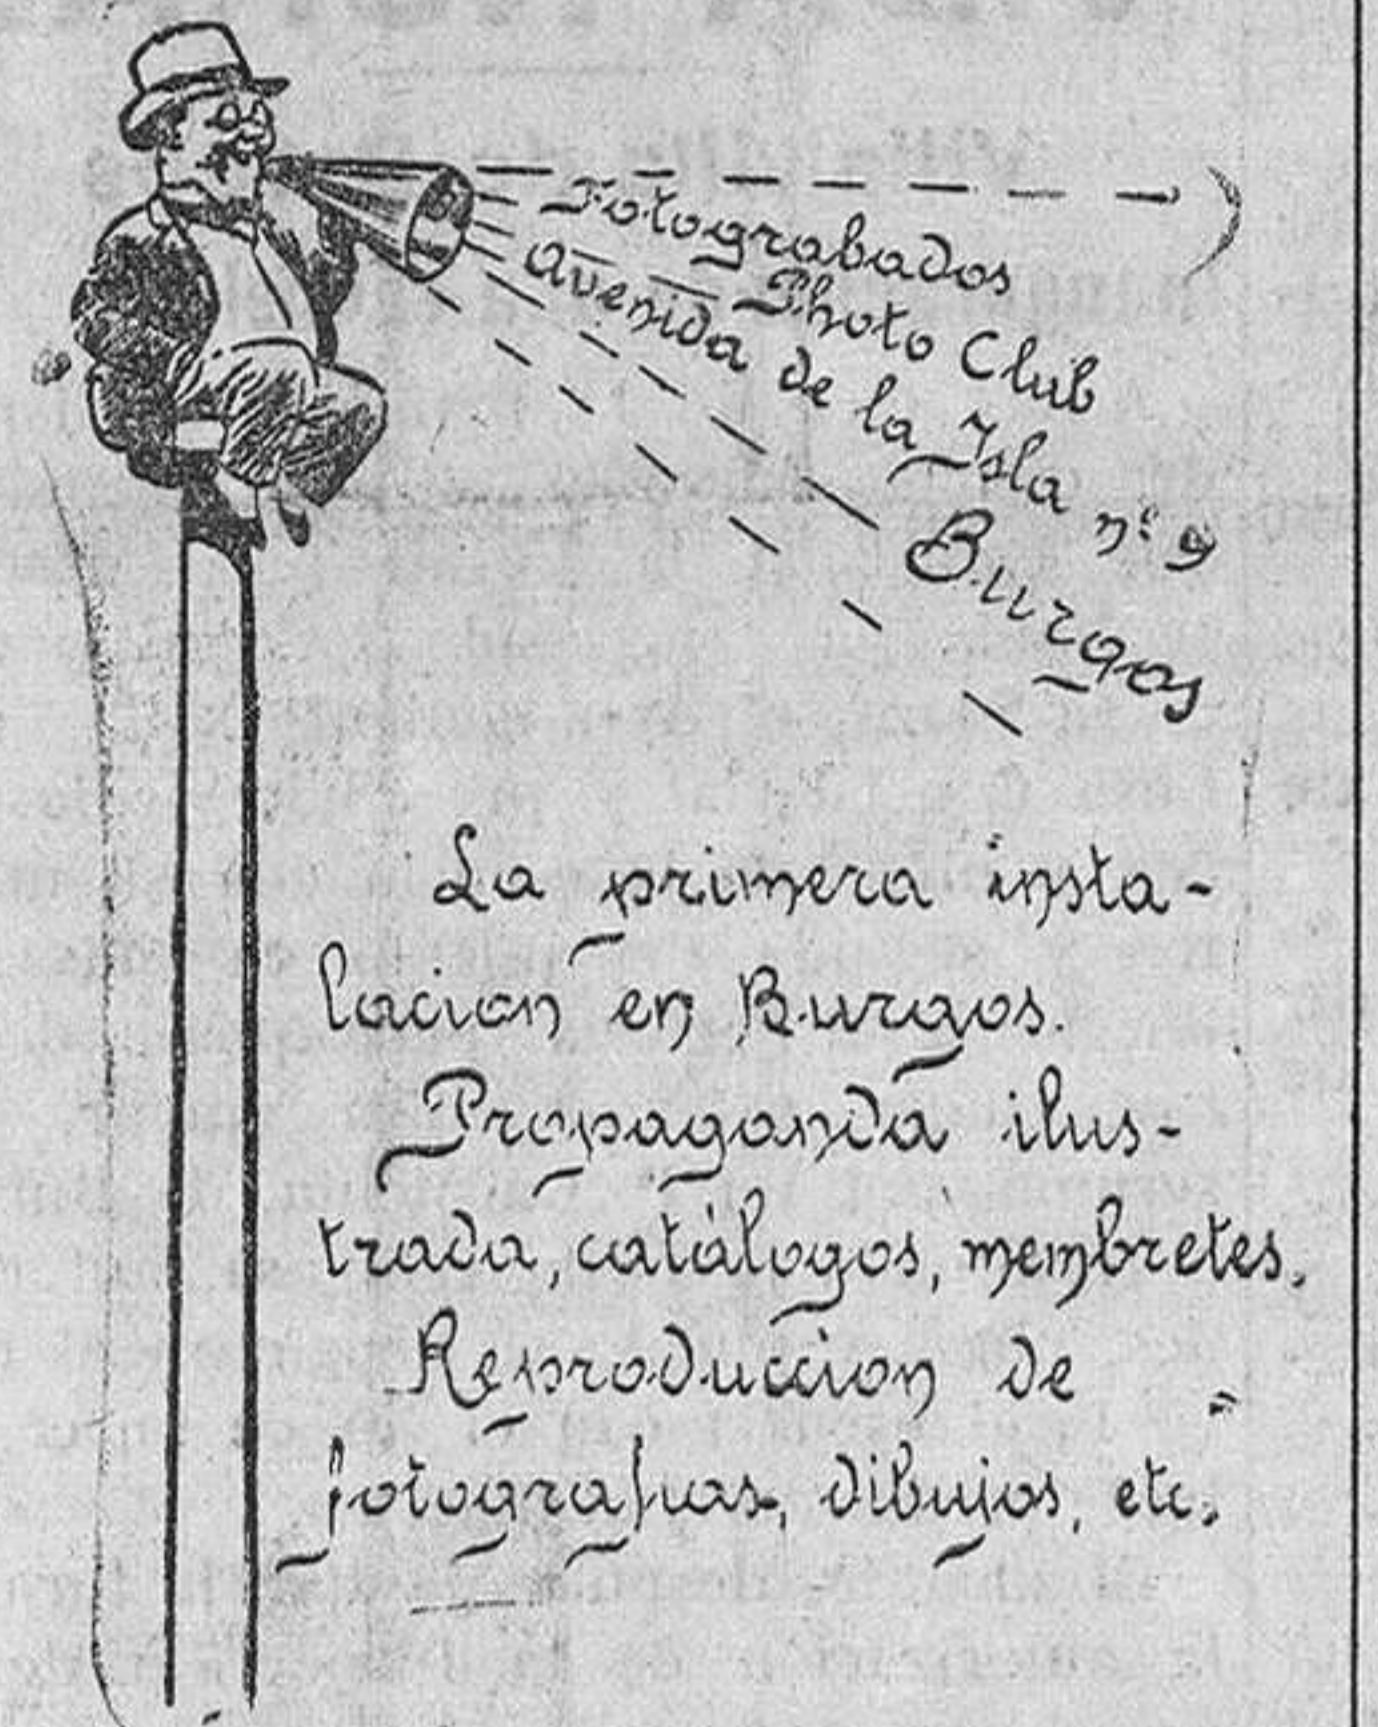 Fotograbados
Photo Club
Avenida de la Isla nº 9
Burgos
La primera insta-
lacion en Burgos.
Propaganda ilus-
trada, catálogos, membretes.
Reproduccion de
fotografias, dibujos, etc.